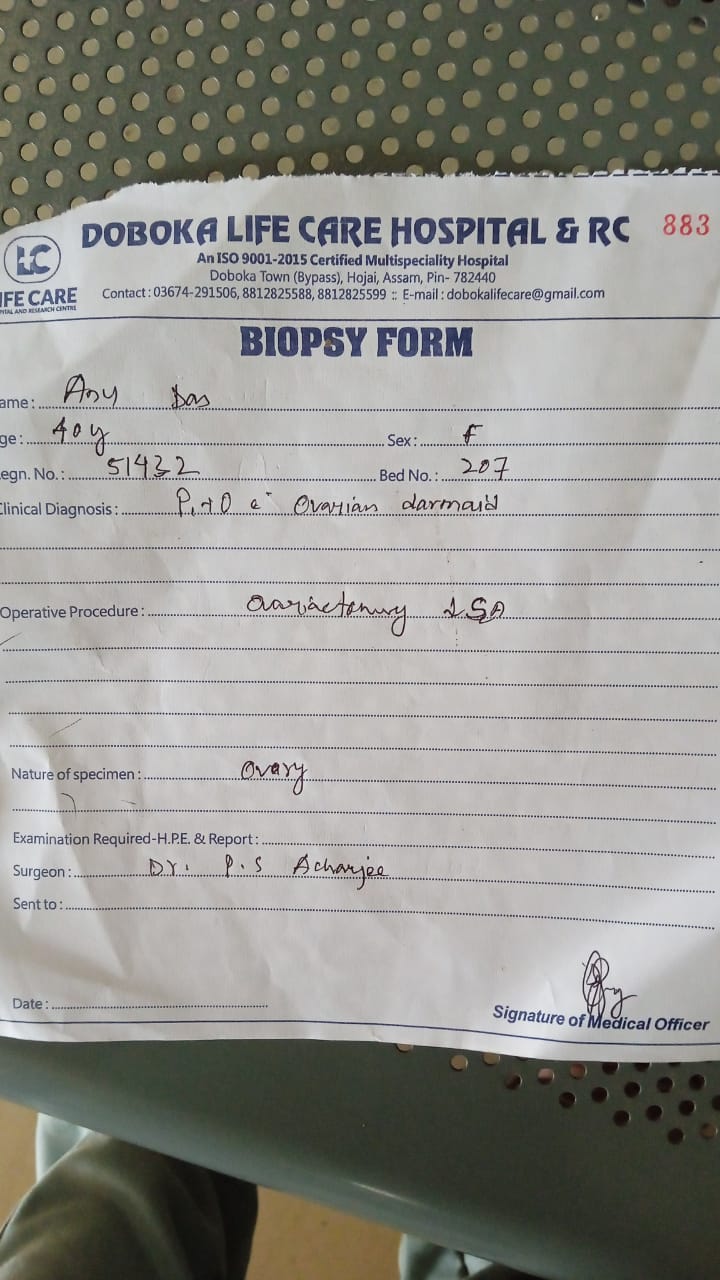 DOBOKA LIFE CARE HOSPITAL & RC 883
An ISO 9001-2015 Certified Multispeciality Hospital
Doboka Town (Bypass), Hojai, Assam, Pin- 782440
Contact : 03674-291506, 8812825588, 8812825599 :: E-mail : dobokalifecare@gmail.com
LC
IFE CARE
PITAL AND RESEARCH CENTRE
BIOPSY FORM
ame: Any Das
ge: 40y Sex: F
egn. No.: 51432 Bed No.: 207
Clinical Diagnosis: P1+0 c̄ Ovarian darmaid
Operative Procedure: LSA
Nature of specimen: Ovary
Examination Required-H.P.E. & Report:
Surgeon: Dr. P.S Acharjee
Sent to:
Date:
Signature of Medical Officer